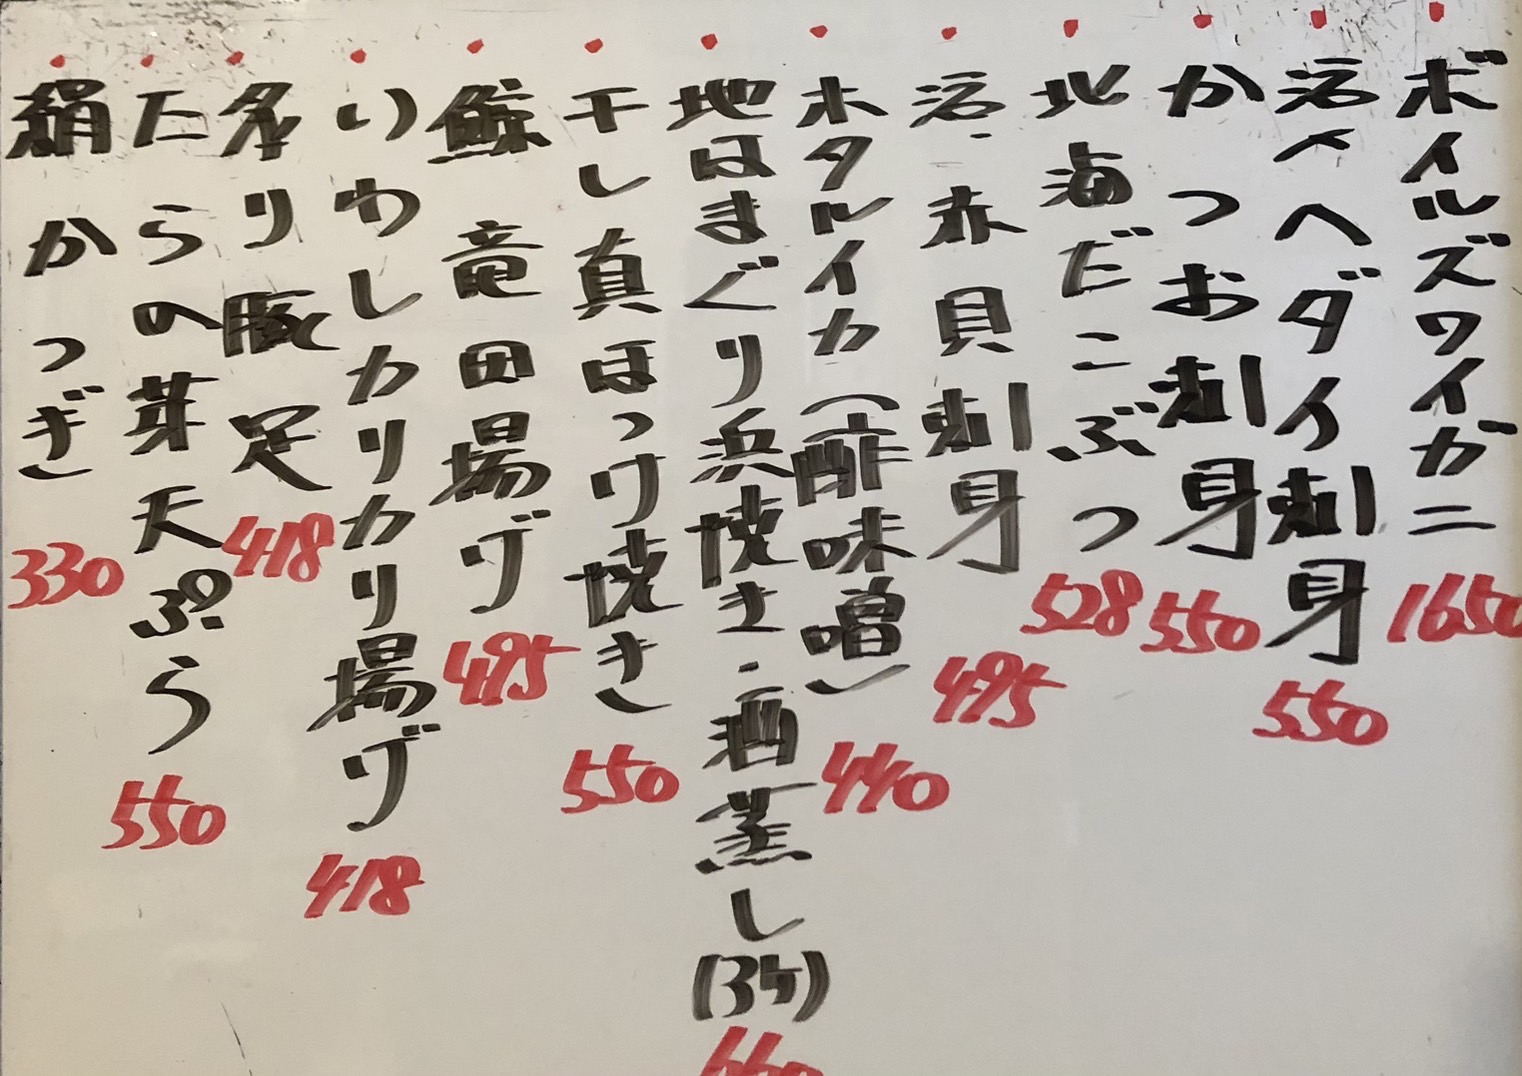 ボイルズワイガニ 1650
活〆ヘダイ刺身 550
かつお刺身 550
北海だこぶつ 528
活・赤貝刺身 495
ホタルイカ(酢味噌) 440
地はまぐり浜焼き・酒蒸し(3ケ) 660
干し真ほっけ焼き 550
鯨 竜田揚げ 495
いわしカリカリ揚げ 418
炙り豚足 418
たらの芽天ぷら 550
絹かつぎ 330